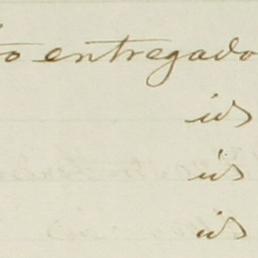 to entregado
id
id
id